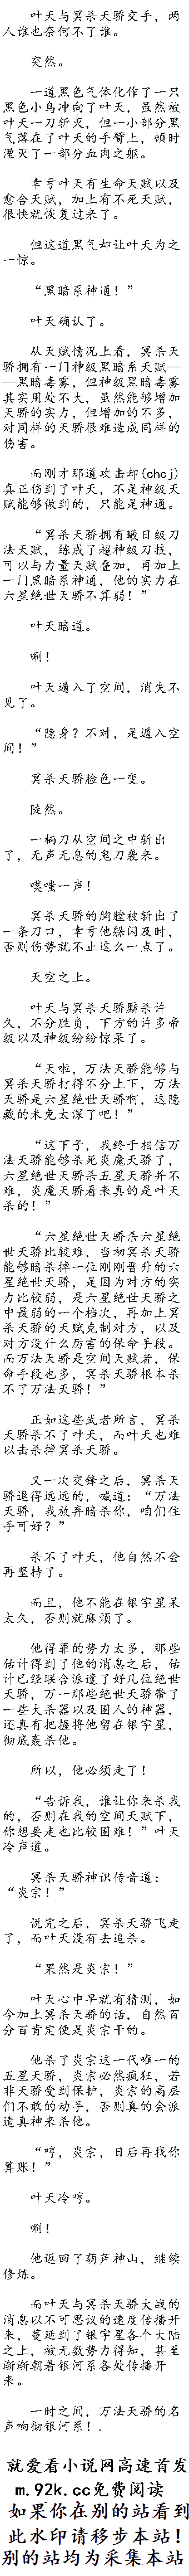 叶天与冥杀天骄交手，两
人谁也奈何不了谁。
突然。
一道黑色气体化作了一只
黑色小鸟冲向了叶天，虽然被
叶天一刀斩灭，但一小部分黑
气落在了叶天的手臂上，顿时
湮灭了一部分血肉之躯。
幸亏叶天有生命天赋以及
愈合天赋，加上有不死天赋，
很快就恢复过来了。
但这道黑气却让叶天为之
一惊。
“黑暗系神通！”
叶天确认了。
从天赋情况上看，冥杀天
骄拥有一门神级黑暗系天赋—
—黑暗毒雾，但神级黑暗毒雾
其实用处不大，虽然能够增加
天骄的实力，但增加的不多，
对同样的天骄很难造成同样的
伤害。
而刚才那道攻击却(chcj)
真正伤到了叶天，不是神级天
赋能够做到的，只能是神通。
“冥杀天骄拥有曦日级刀
法天赋，练成了超神级刀技，
可以与力量天赋叠加，再加上
一门黑暗系神通，他的实力在
六星绝世天骄不算弱！”
叶天暗道。
唰！
叶天遁入了空间，消失不
见了。
“隐身？不对，是遁入空
间！”
冥杀天骄脸色一变。
陡然。
一柄刀从空间之中斩出
了，无声无息的鬼刀袭来。
噗嗤一声！
冥杀天骄的胸膛被斩出了
一条刀口，幸亏他躲闪及时，
否则伤势就不止这么一点了。
天空之上。
叶天与冥杀天骄厮杀许
久，不分胜负，下方的许多帝
级以及神级纷纷惊呆了。
“天啦，万法天骄能够与
冥杀天骄打得不分上下，万法
天骄是六星绝世天骄啊，这隐
藏的未免太深了吧！”
“这下子，我终于相信万
法天骄能够杀死炎魔天骄了，
六星绝世天骄杀五星天骄并不
难，炎魔天骄看来真的是叶天
杀的！”
“六星绝世天骄杀六星绝
世天骄比较难，当初冥杀天骄
能够暗杀掉一位刚刚晋升的六
星绝世天骄，是因为对方的实
力比较弱，是六星绝世天骄之
中最弱的一个档次，再加上冥
杀天骄的天赋克制对方，以及
对方没什么厉害的保命手段。
而万法天骄是空间天赋者，保
命手段也多，冥杀天骄根本杀
不了万法天骄！”
正如这些武者所言，冥杀
天骄杀不了叶天，而叶天也难
以击杀掉冥杀天骄。
又一次交锋之后，冥杀天
骄退得远远的，喊道：“万法
天骄，我放弃暗杀你，咱们住
手可好？”
杀不了叶天，他自然不会
再坚持了。
而且，他不能在银宇星呆
太久，否则就麻烦了。
他得罪的势力太多，那些
估计得到了他的消息之后，估
计已经联合派遣了好几位绝世
天骄，万一那些绝世天骄带了
一些大杀器以及困人的神器，
还真有把握将他留在银宇星，
彻底轰杀他。
所以，他必须走了！
“告诉我，谁让你来杀我
的，否则在我的空间天赋下，
你想要走也比较困难！”叶天
冷声道。
冥杀天骄神识传音道：
“炎宗！”
说完之后，冥杀天骄飞走
了，而叶天没有去追杀。
“果然是炎宗！”
叶天心中早就有猜测，如
今加上冥杀天骄的话，自然百
分百肯定便是炎宗干的。
他杀了炎宗这一代唯一的
五星天骄，炎宗必然疯狂，若
非天骄受到保护，炎宗的高层
们不敢的动手，否则真的会派
遣真神来杀他。
“哼，炎宗，日后再找你
算账！”
叶天冷哼。
唰！
他返回了葫芦神山，继续
修炼。
而叶天与冥杀天骄大战的
消息以不可思议的速度传播开
来，蔓延到了银宇星各个大陆
之上，被无数势力得知，甚至
渐渐朝着银河系各处传播开
来。
一时之间，万法天骄的名
声响彻银河系！.
就爱看小说网高速首发
m.92k.cc免费阅读
如果你在别的站看到
此水印请移步本站！
别的站均为采集本站